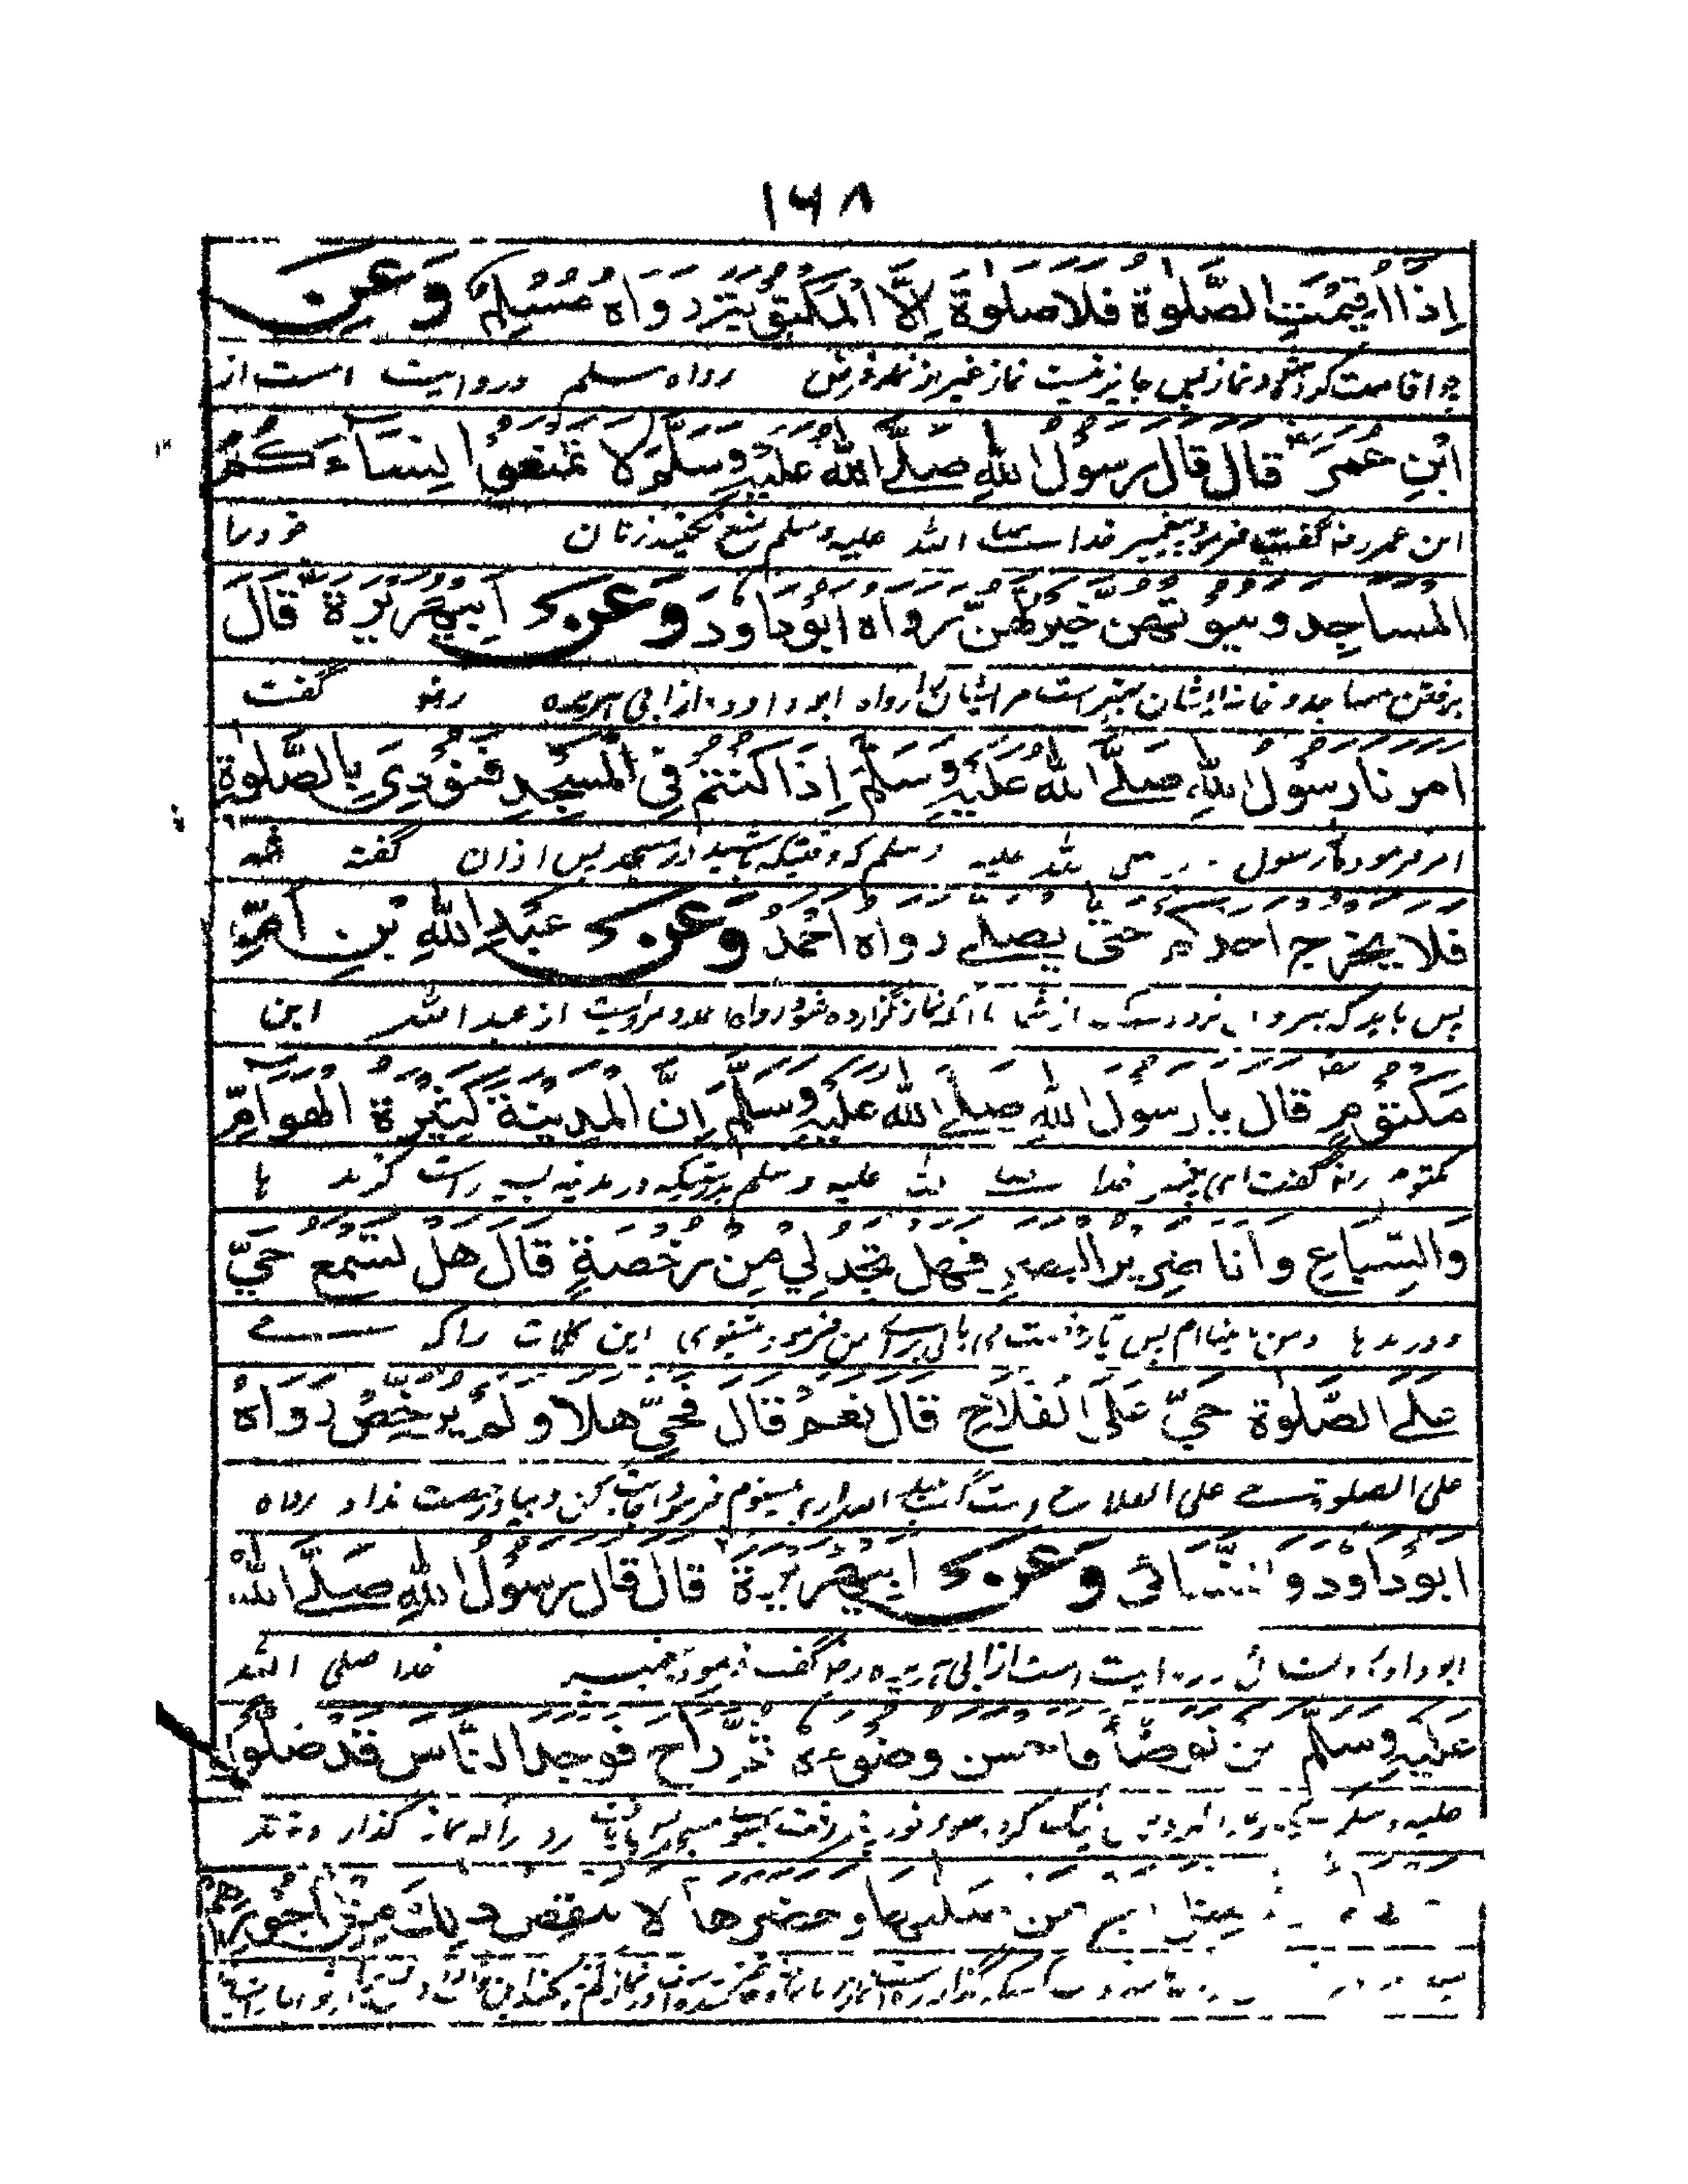 ۱۶۸
اِذَا اُقِيْمَتِ الصَّلٰوةُ فَلَا صَلٰوةَ اِلَّا الْمَكْتُوْبَةُ رَوَاهُ مُسْلِمٌ وَعَنِ
چو اقامت کرده شود نماز پس جایز نیست نماز غیر از نماز فرض رواه مسلم و روایت است از
ابْنِ عُمَرَ قَالَ قَالَ رَسُوْلُ اللّٰهِ صَلَّى اللّٰهُ عَلَيْهِ وَسَلَّمَ لَا تَمْنَعُوْا نِسَاءَكُمُ
ابن عمر رضه گفت فرمود پیغمبر خدا صلی الله علیه وسلم منع نکنید زنان خود را
الْمَسَاجِدَ وَبُيُوْتُهُنَّ خَيْرٌ لَّهُنَّ رَوَاهُ اَبُوْدَاوٗدَ وَعَنْ اَبِيْ هُرَيْرَةَ قَالَ
برفتن مساجد و خانه ایشان بهتر است مر ایشان را رواه ابو داود از ابی هریره رضه گفت
اَمَرَنَا رَسُوْلُ اللّٰهِ صَلَّى اللّٰهُ عَلَيْهِ وَسَلَّمَ اِذَا كُنْتُمْ فِي الْمَسْجِدِ فَنُوْدِيَ بِالصَّلٰوةِ
امر فرمود ما را رسول علیه وسلم که وقتیکه باشید در مسجد پس اذان گفته شد
فَلَا يَخْرُجْ اَحَدُكُمْ حَتّٰى يُصَلِّيَ رَوَاهُ اَحْمَدُ وَعَنْ عَبْدِ اللّٰهِ بْنِ اُمِّ
پس باید که بیرون نرود از شما تا آنکه نماز گزارده شود رواه احمد و مرویست از عبد الله ابن
مَكْتُوْمٍ قَالَ يَا رَسُوْلَ اللّٰهِ صَلَّى اللّٰهُ عَلَيْهِ وَسَلَّمَ اِنَّ الْمَدِيْنَةَ كَثِيْرَةُ الْهَوَامِّ
مکتوم رضه گفت ای پیغمبر خدا صلی الله علیه وسلم بدرستیکه در مدینه بسیار است گزند ها
وَالسِّبَاعِ وَاَنَا ضَرِيْرُ الْبَصَرِ فَهَلْ تَجِدُ لِيْ مِنْ رُخْصَةٍ قَالَ هَلْ تَسْمَعُ حَيَّ
و درندها و من نابینا ام پس آیا رخصت می یابی برای من فرمود میشنوی این کلمات را که حی
عَلَى الصَّلٰوةِ حَيَّ عَلَى الْفَلَاحِ قَالَ نَعَمْ قَالَ فَحَيَّ هَلًا وَلَمْ يُرَخِّصْ رَوَاهُ
علی الصلوة حی علی الفلاح گفت میشنوم فرمود اجابت کن و بیا و رخصت نداد رواه
اَبُوْدَاوٗدَ وَالنَّسَائِيُّ وَعَنْ اَبِيْ هُرَيْرَةَ قَالَ قَالَ رَسُوْلُ اللّٰهِ صَلَّى اللّٰهُ
ابو داود و نسائی روایت است از ابی هریره رضه گفت فرمود پیغمبر خدا صلی الله
عَلَيْهِ وَسَلَّمَ مَنْ تَوَضَّأَ فَاَحْسَنَ وُضُوْءَهٗ ثُمَّ رَاحَ فَوَجَدَ النَّاسَ قَدْ صَلَّوْا
علیه وسلم نیک کرد رفت بسوی مسجد پس یافت نماز گذارده
مِثْلَ مَنْ صَلَّاهَا وَحَضَرَهَا لَا يَنْقُصُ ذٰلِكَ مِنْ اُجُوْرِهِمْ